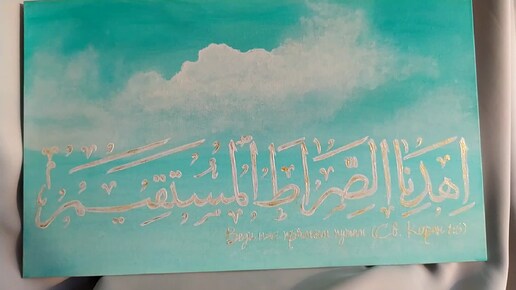 اِهْدِنَا الصِّرَاطَ الْمُسْتَقِيمَ
Веди нас прямым путём (Св. Коран 1:6)